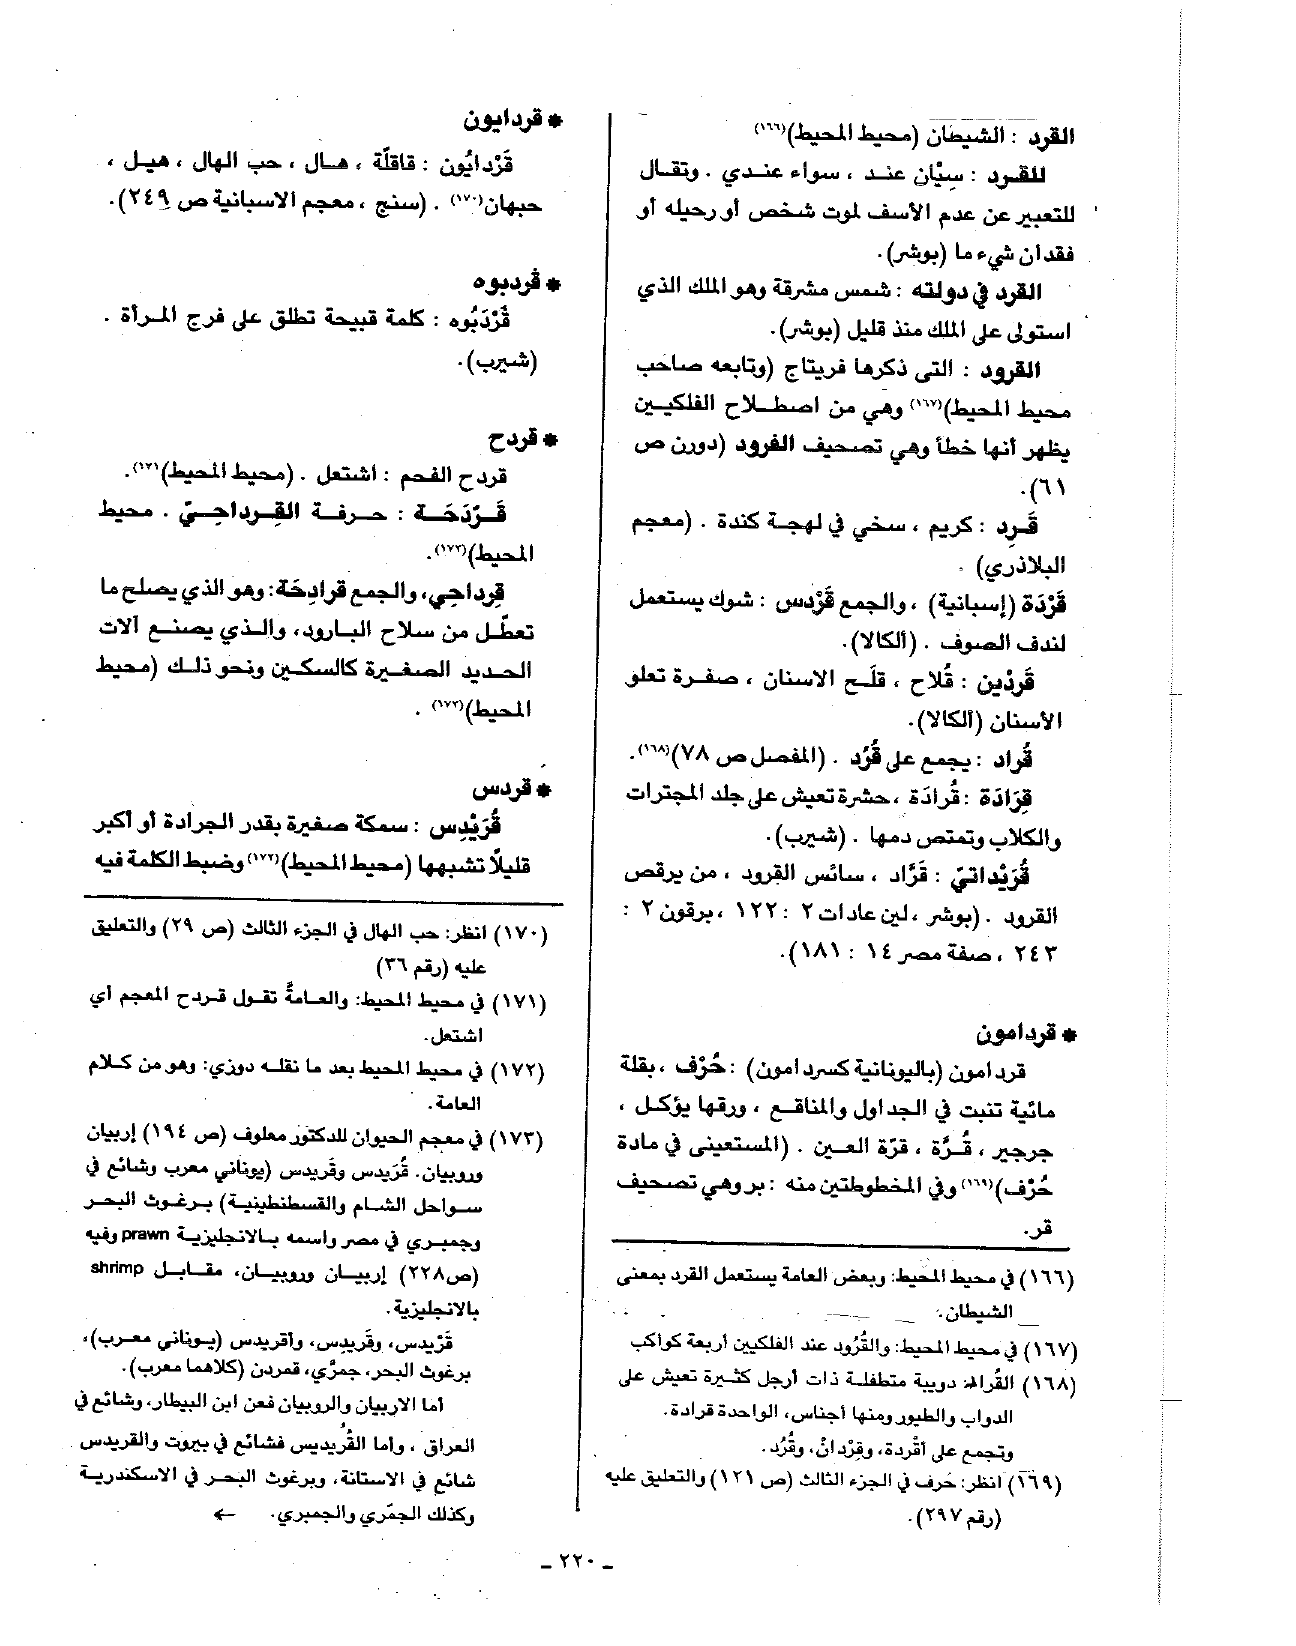 القرد : الشيطان (محيط المحيط)(١٦٦)
للقرد : سِيّان عند ، سواء عندي . وتقال
للتعبير عن عدم الأسف لموت شخص أو رحيله أو
فقدان شيء ما (بوشر).
القرد في دولته : شمس مشرقة وهو الملك الذي
استولى على الملك منذ قليل (بوشر).
القرود : التى ذكرها فريتاج (وتابعه صاحب
محيط المحيط)(١٦٧) وهي من اصطلاح الفلكيين
يظهر أنها خطأ وهي تصحيف الفرود (دورن ص
٦١).
قَرِد : كريم ، سخي في لهجة كندة . (معجم
البلاذري) .
قَرْدَة (إسبانية) ، والجمع قَرْدس : شوك يستعمل
لندف الصوف . (ألكالا).
قَردْين : قُلاح ، قلَح الاسنان ، صفرة تعلو
الأسنان (ألكالا).
قُراد : يجمع على قُرُد . (المفصل ص ٧٨)(١٦٨).
قِرَادَة : قُرادَة ، حشرة تعيش على جلد المجترات
والكلاب وتمتص دمها . (شيرب).
قُرَيْداتيّ : قَرَّاد ، سائس القرود ، من يرقص
القرود . (بوشر ، لين عادات ٢ : ١٢٢ ، برقون ٢ :
٢٤٣ ، صفة مصر ١٤ : ١٨١).
* قردامون
قردامون (باليونانية كسردامون) : حُرْف ، بقلة
مائية تنبت في الجداول والمناقع ، ورقها يؤكل ،
جرجير ، قُرَّة ، قرّة العين . (المستعينى في مادة
حُرْف)(١٦٩) وفي المخطوطتين منه : بر وهي تصحيف
قر.
(١٦٦) في محيط المحيط: وبعض العامة يستعمل القرد بمعنى
الشيطان.
(١٦٧) في محيط المحيط: والقُرُود عند الفلكيين أربعة كواكب
(١٦٨) القُراد: دويبة متطفلة ذات أرجل كثيرة تعيش على
الدواب والطيور ومنها أجناس، الواحدة قرادة.
وتجمع على أقْردة، وقِرْدانْ، وقُرُد.
(١٦٩) انظر: حَرف في الجزء الثالث (ص ١٢١) والتعليق عليه
(رقم ٢٩٧).
* قردايون
قَرْدايُون : قاقلّة ، هال ، حب الهال ، هيل ،
حبهان(١٧٠) . (سنج ، معجم الاسبانية ص ٢٤٩).
* قردبوه
قُرْدَبُوه : كلمة قبيحة تطلق على فرج المرأة .
(شيرب).
* قردح
قردح الفحم : اشتعل . (محيط المحيط)(١٧١).
قَرْدَحَة : حرفة القِرداحِيّ . محيط
المحيط)(١٧٢).
قِرداحِي، والجمع قرادِحَة: وهو الذي يصلح ما
تعطّل من سلاح البارود، والذي يصنع آلات
الحديد الصغيرة كالسكين ونحو ذلك (محيط
المحيط)(١٧٢) .
* قردس
قُرَيْدِس : سمكة صغيرة بقدر الجرادة أو أكبر
قليلاً تشبهها (محيط المحيط)(١٧٣) وضبط الكلمة فيه
(١٧٠) انظر: حب الهال في الجزء الثالث (ص ٢٩) والتعليق
عليه (رقم ٣٦)
(١٧١) في محيط المحيط: والعامةُ تقول قردح المعجم أي
اشتعل.
(١٧٢) في محيط المحيط بعد ما نقله دوزي: وهو من كلام
العامة.
(١٧٣) في معجم الحيوان للدكتور معلوف (ص ١٩٤) إربيان
وروبيان. قُرَيدس وقَريدس (يوناني معرب وشائع في
سواحل الشام والقسطنطينية) برغوث البحر
وجمبري في مصر واسمه بالانجليزية prawn وفيه
(ص٢٢٨) إربيان وروبيان، مقابل shrimp
بالانجليزية.
قَرْيدس، وقَريدس، وأقريدس (يوناني معرب)،
برغوث البحر، جمرّي، قمردن (كلاهما معرب).
أما الاربيان والروبيان فعن ابن البيطار، وشائع في
العراق ، وأما القُريديس فشائع في بيروت والقريدس
شائع في الاستانة، وبرغوث البحر في الاسكندرية
وكذلك الجمّري والجمبري. ←
ـ ٢٢٠ ـ